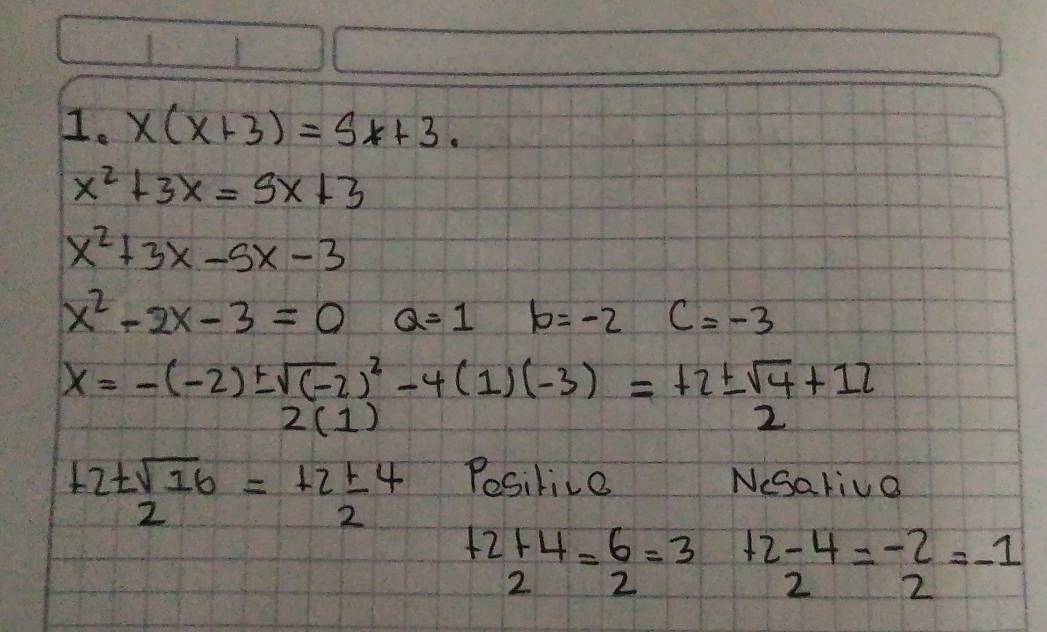 1. x(x+3)=5x+3.
x²+3x=5x+3
x²+3x-5x-3
x²-2x-3=0 a=1 b=-2 c=-3
x=-(-2)±√(-2)²-4(1)(-3) = +2±√4+12
2(1) 2
+2±√16 = +2±4 Positivo Negativo
2 2
+2+4=6=3 +2-4=-2=-1
2 2 2 2